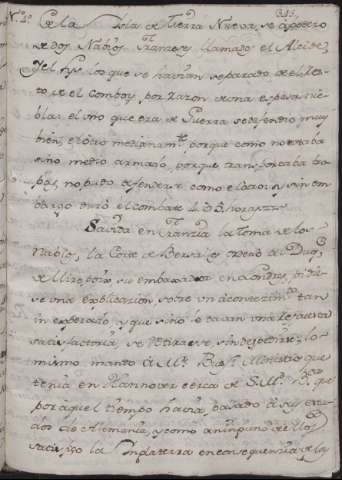 N.º 1º 315.
de la Isla de Tierra Nueva, se apoderó
de dos Navíos Franceses llamados el Alcide,
y el Lys, los que se havian separado de el Res-
to de el Comboy, por razon de una espesa nie-
bla: el uno que era de Guerra se defendio muy
bien, el otro medianam.te porque como no estaba
sino medio armado, porque transportaba tro-
pas, no pudo defenderse como el otro: y sin em-
bargo duró el combate 5 horas
Savida en Francia la toma de los
Navios, la Corte de Versalles ordenó al Duq.
de Mirepoix su embaxador en Londres, pidie-
se una explicacion sobre un acontecim.to tan
inesperado, y que sino le davan una respuesta
satisfactoria, se retirase, sin despedirse; lo
mismo mandó a M.r Ministro que
tenia en Hannover cerca de S. M. B. que
por aquel tiempo havia pasado a sus esta-
dos de Alemania, y como a ninguno de los
satisfizo la Inglaterra en consequencia de las